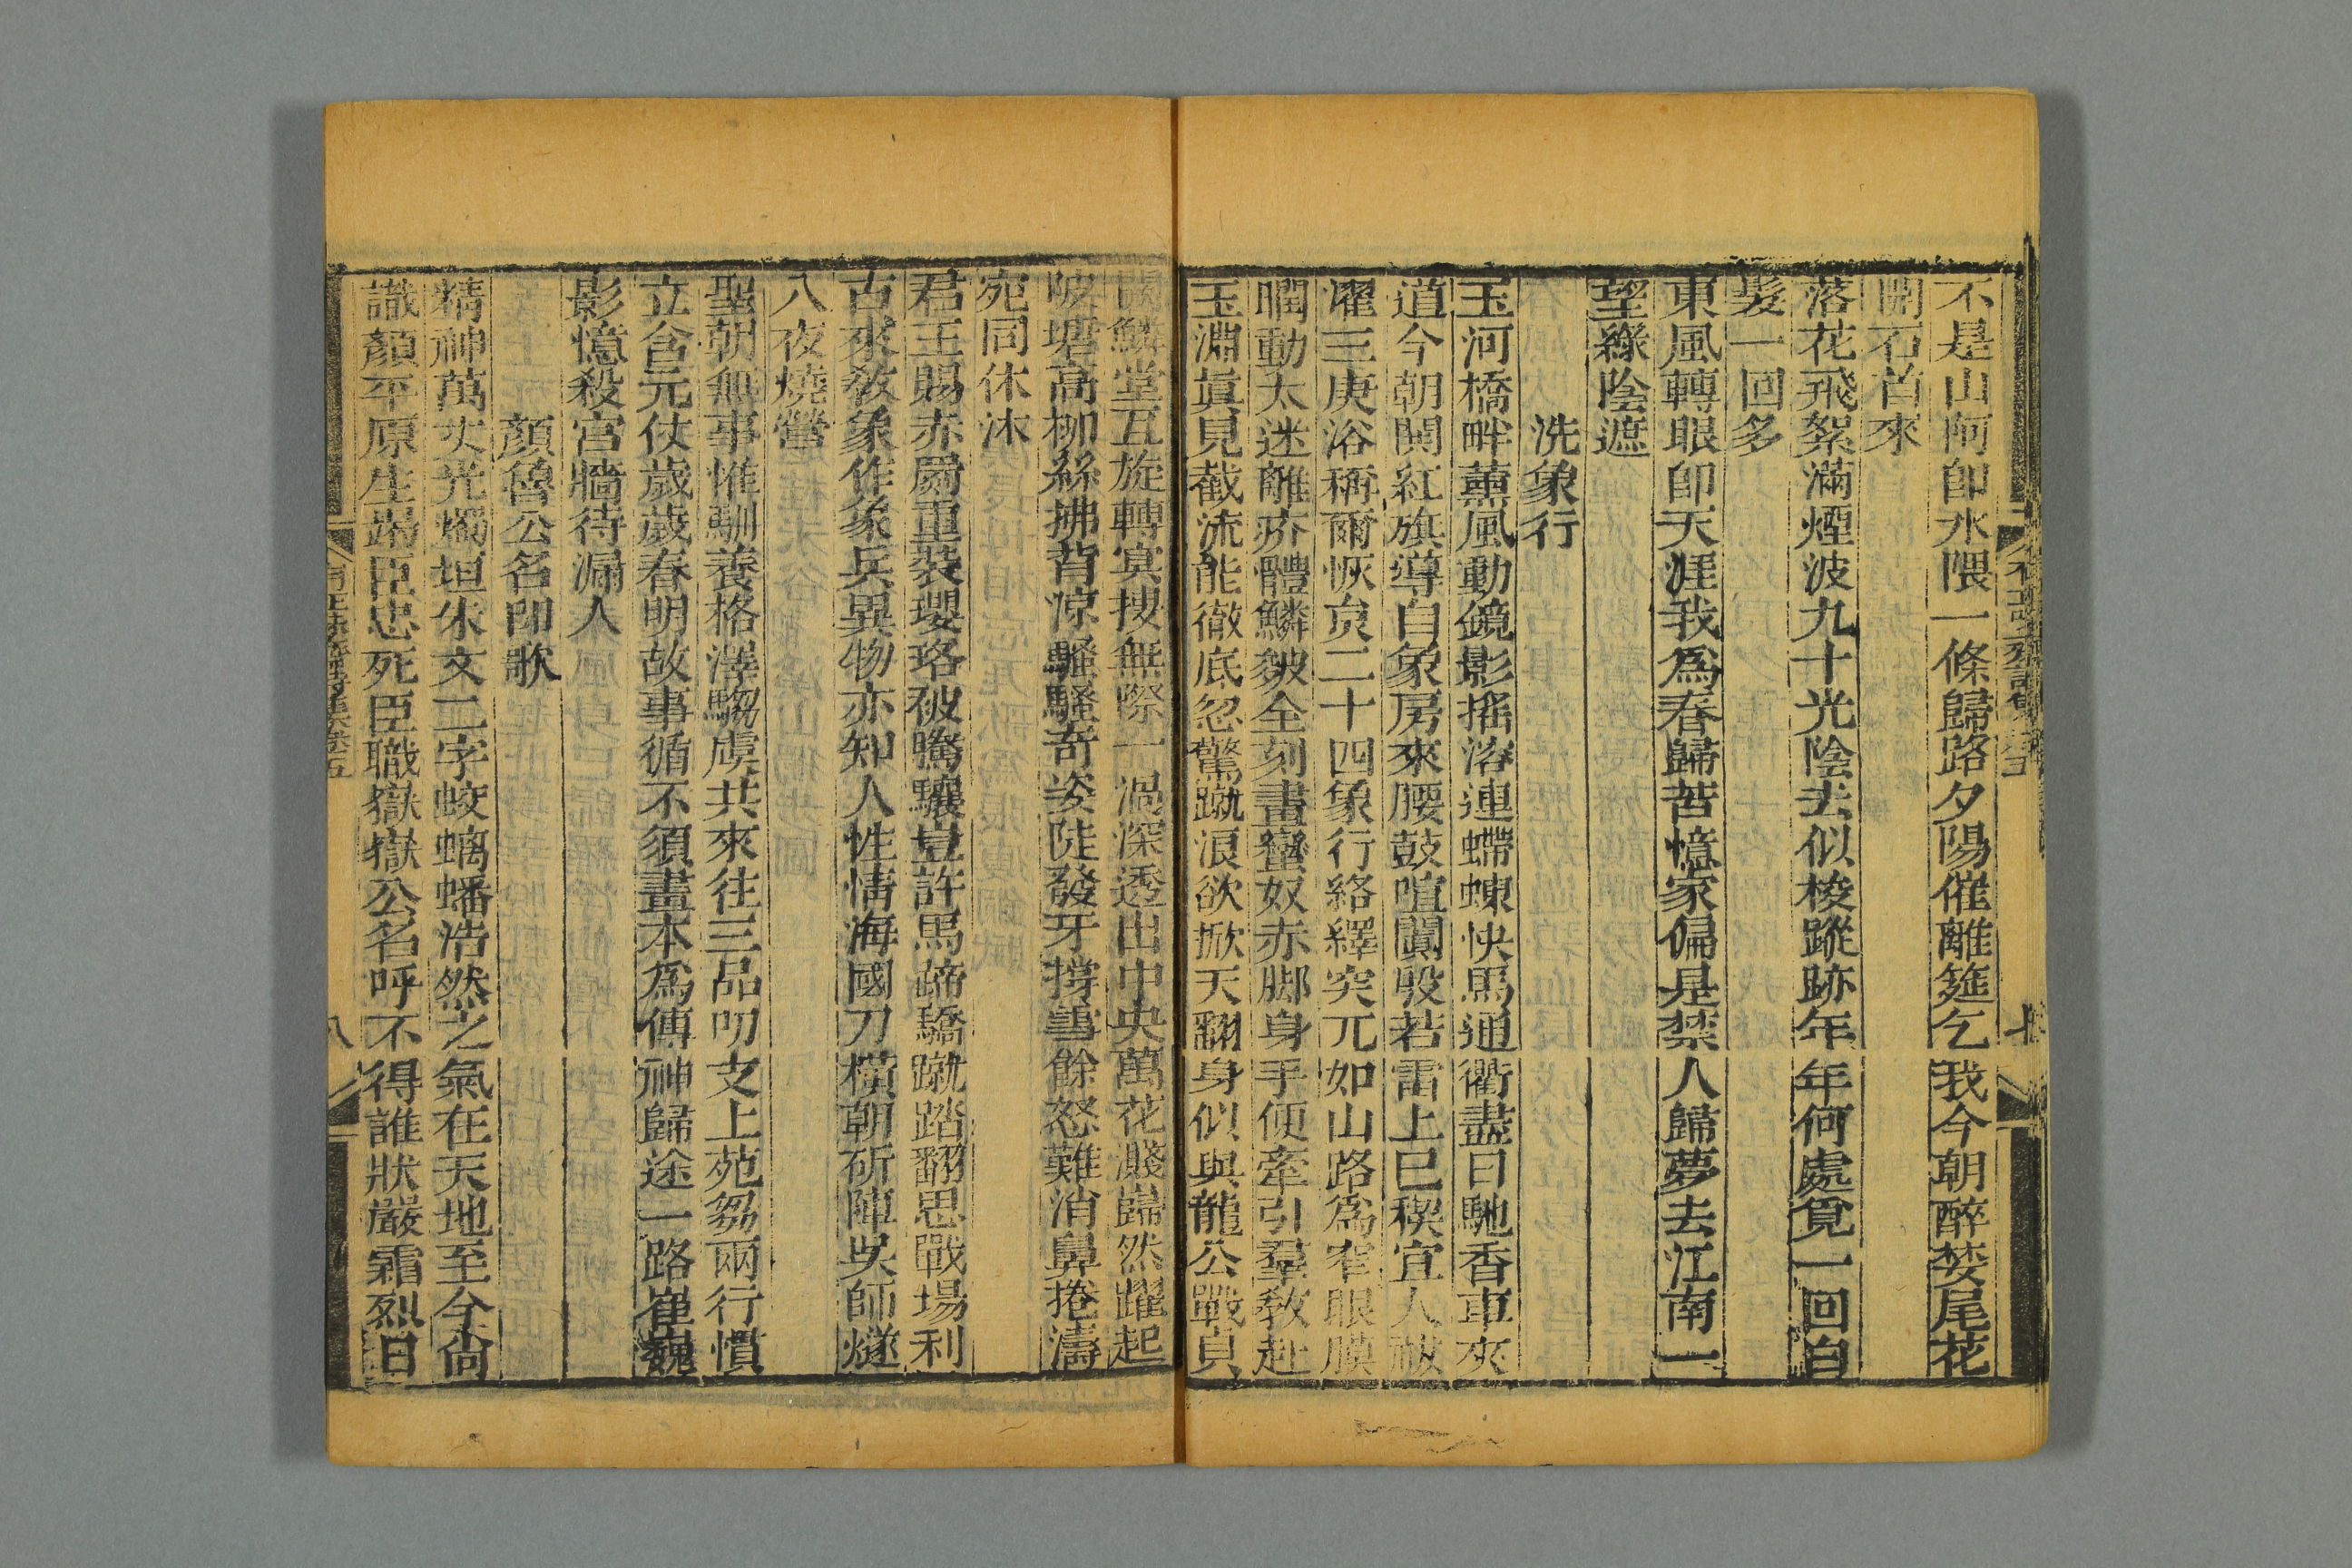 不是山阿卽水隈一條歸路夕陽催離筵乞我今朝醉婪尾花
開石首來
落花飛絮滿煙波九十光陰去似梭蹤跡年年何處覓一回白
髮一回多
東風轉眼卽天涯我爲春歸苦憶家偏是禁人歸夢去江南一
望綠陰遮
洗象行
玉河橋畔薰風動鏡影搖溶連螮蝀快馬通衢盡日馳香車夾
道今朝鬨紅旗導自象房來腰鼓喧闐殷若雷上巳禊宜人祓
濯三庚浴稱爾恢炱二十四象行絡繹突兀如山路爲窄眼膜
瞤動太迷離疥體鱗皴全刻畫蠻奴赤脚身手便牽引羣敎赴
玉淵眞見截流能徹底忽驚蹴浪欲掀天翻身似與龍公戰貝
闕鱗堂互旋轉冥搜無際一渦深透出中央萬花濺巋然躍起
陂塘高柳絲拂背凉騷騷奇姿陡發牙撐雪餘怒難消鼻捲濤
宛同休沐
君王賜赤罽重裝瓔珞被騰驤豈許馬蹄驕蹴踏翻思戰場利
古來敎象作象兵異物亦知人性情海國刀橫朝斫陣吳師燧
入夜燒營
聖朝無事惟馴養格澤騶虞共來往三品叨支上苑芻兩行慣
立含元仗歲歲春明故事循不須畫本爲傳神歸途一路崔巍
影憶殺宮牆待漏人
顏魯公名印歌
精神萬丈光燭坦朱文二字蛟螭蟠浩然之氣在天地至今尙
識顏平原生竭臣忠死臣職嶽嶽公名呼不得誰狀嚴霜烈日
八